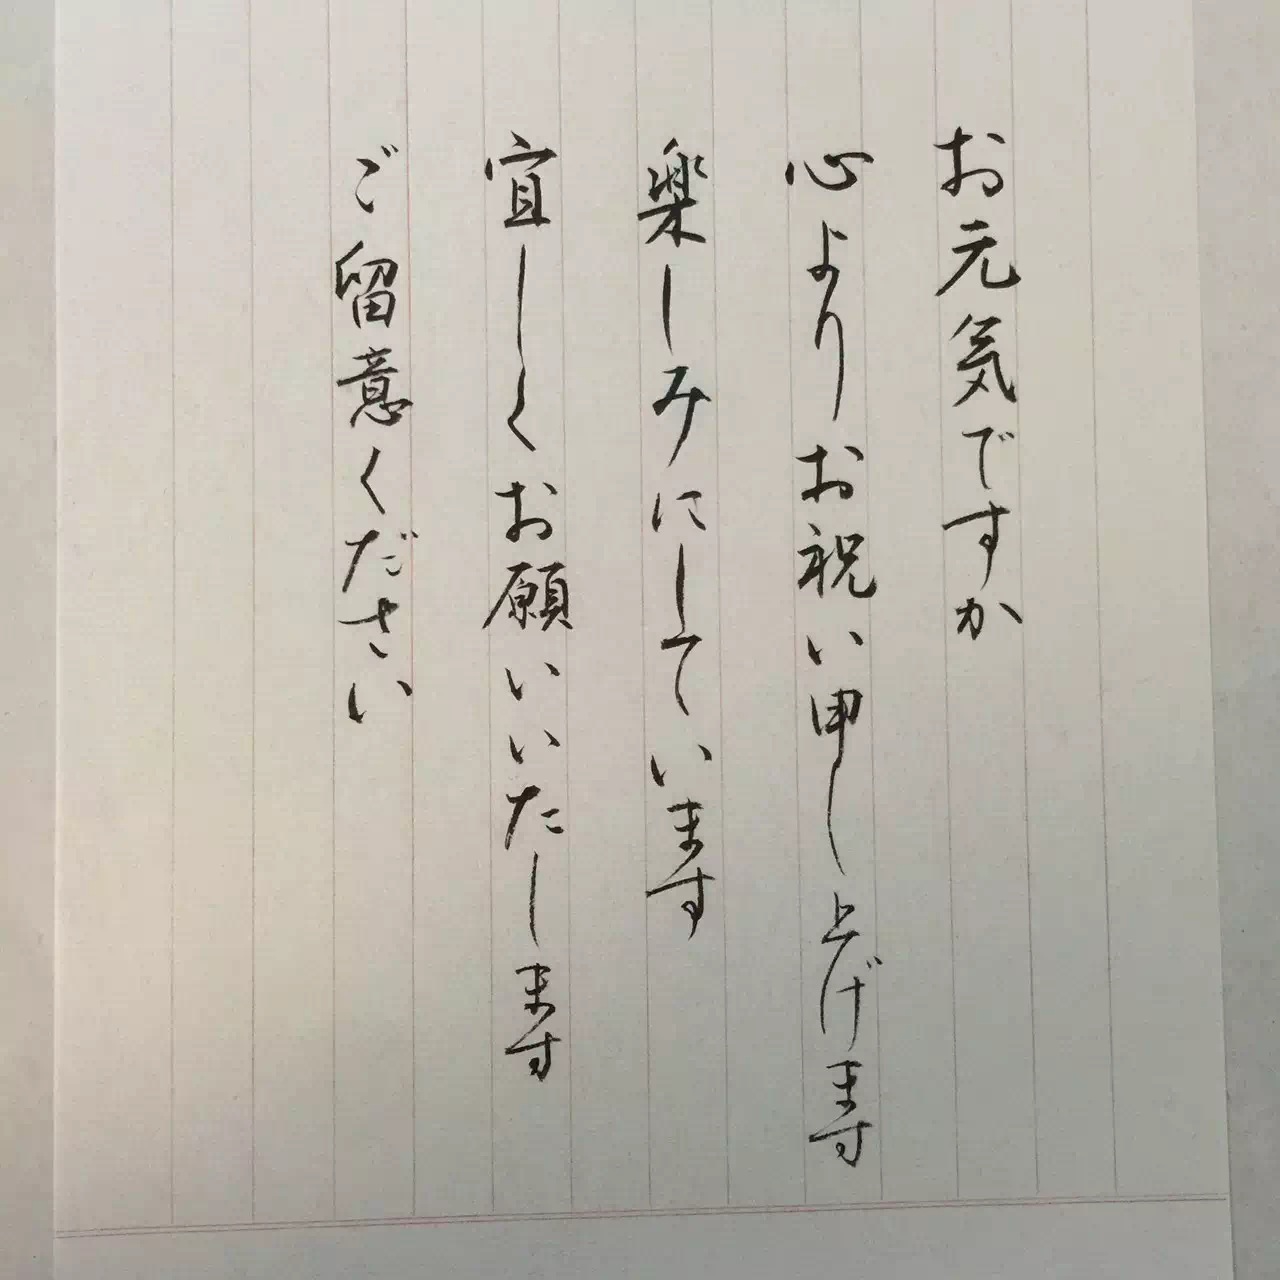 お元気ですか
心よりお祝い申し上げます
楽しみにしています
宜しくお願いいたします
ご留意ください